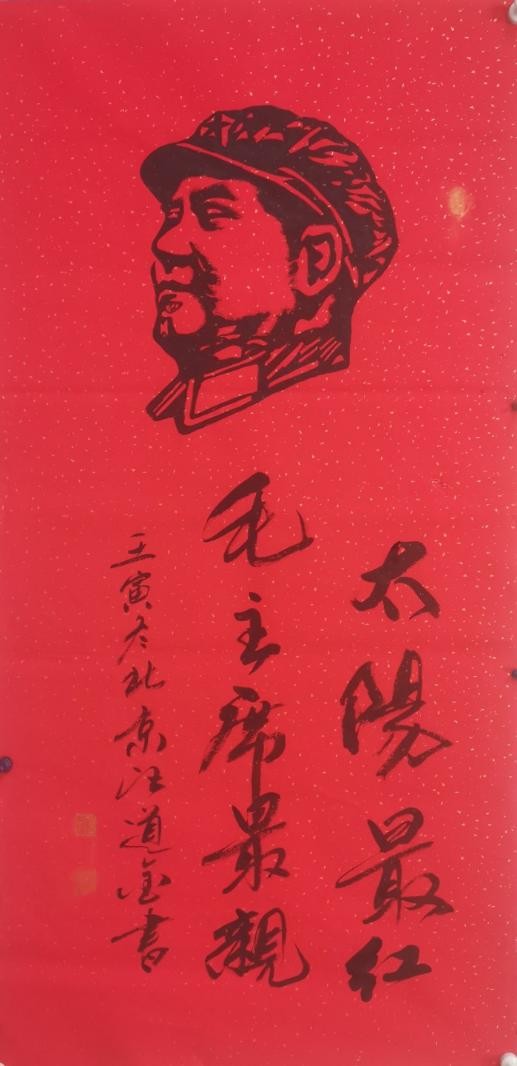 太陽最紅
毛主席最親
壬寅冬北京汪道金書